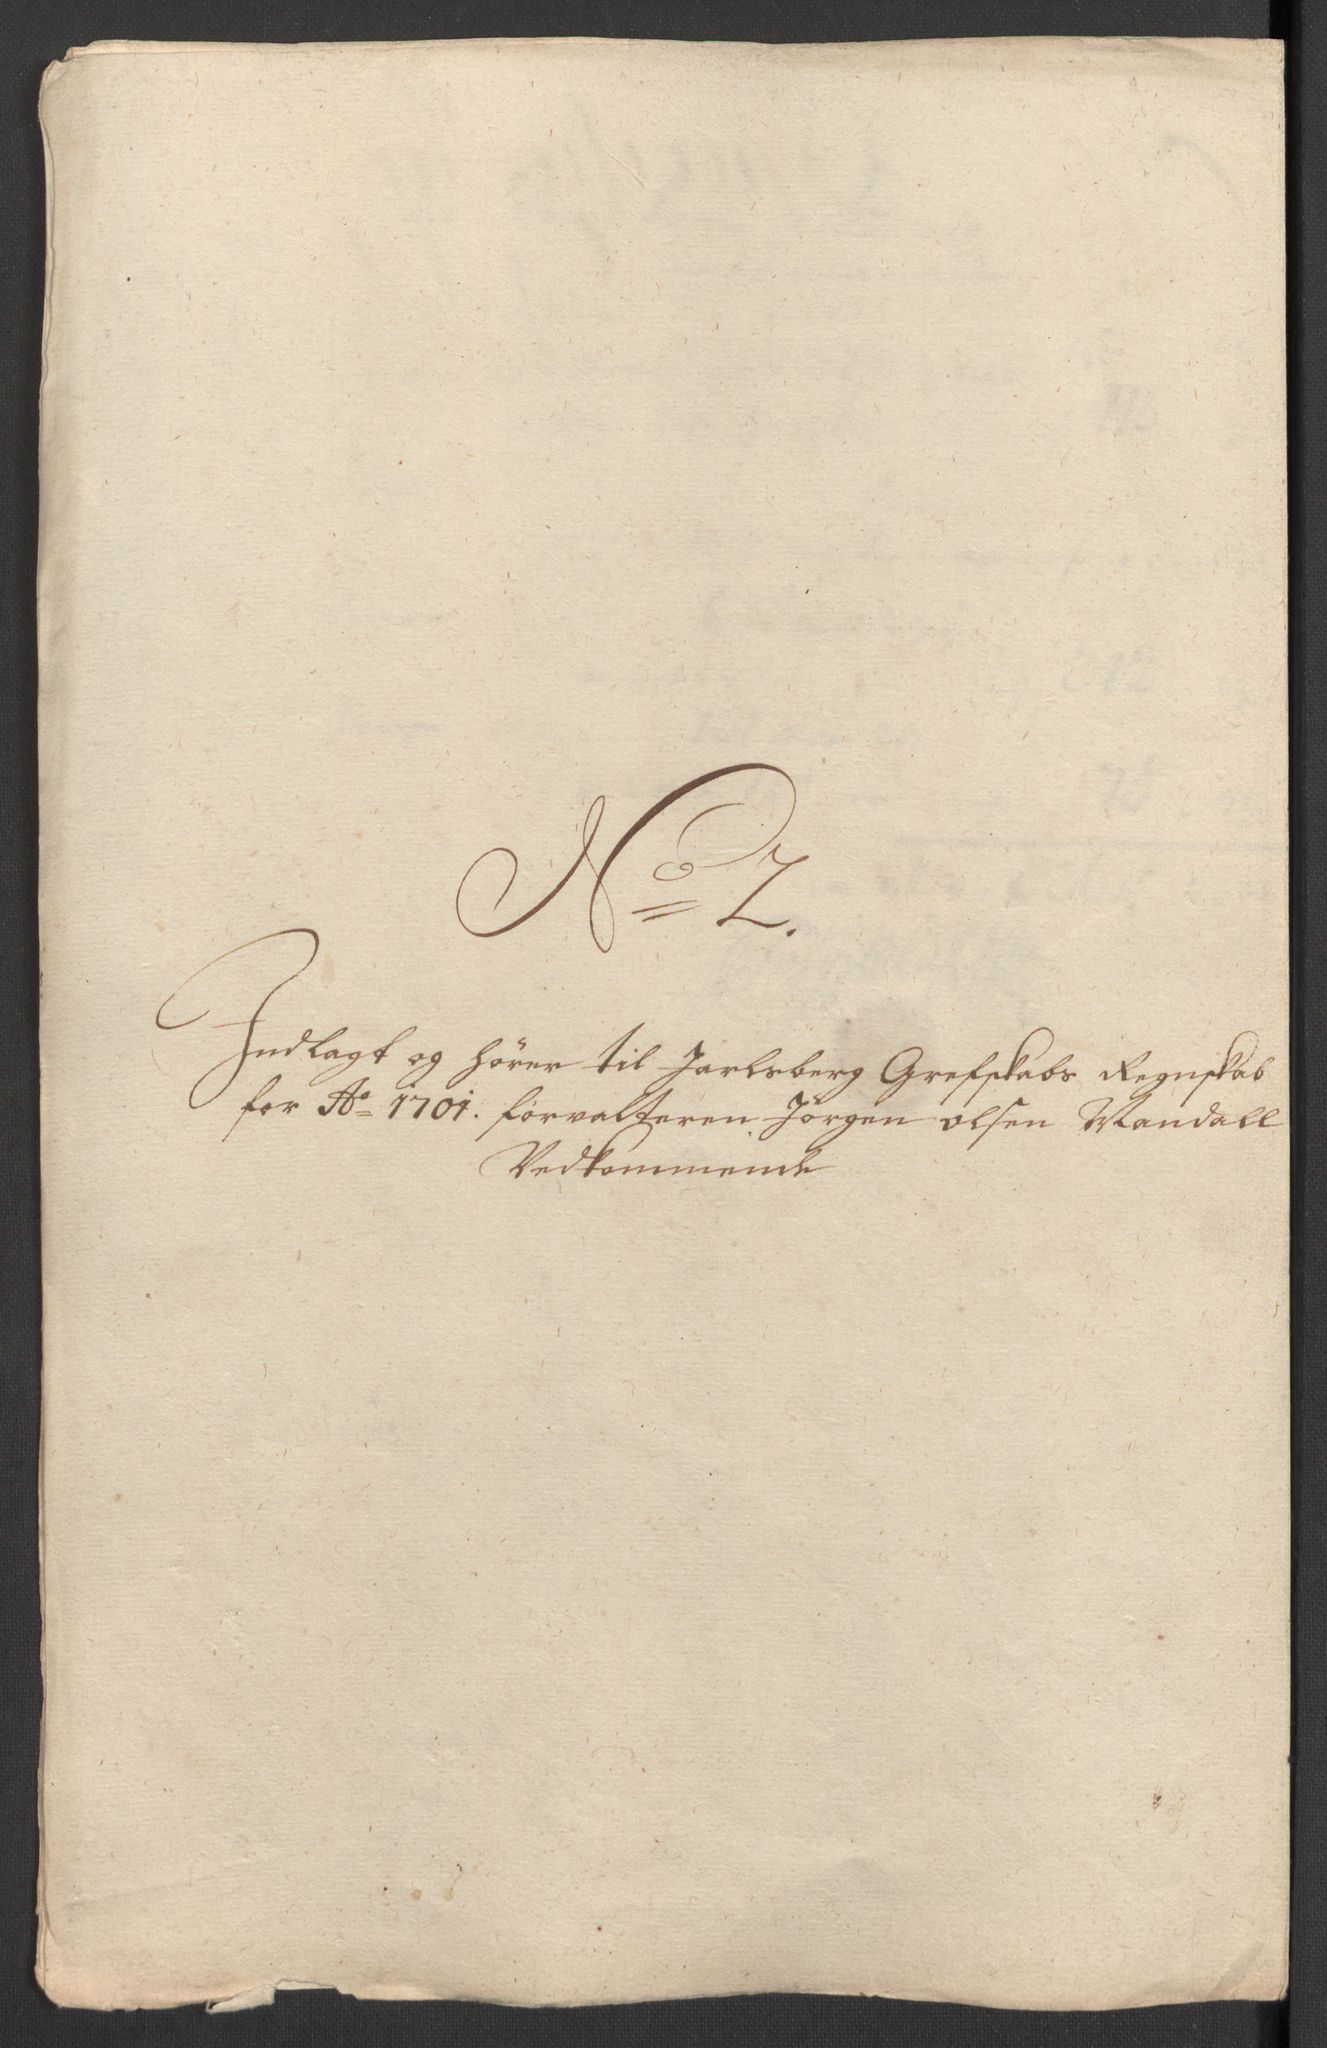 No 2.
Indlagt og hörer til Jarlsberg Grefskabs Regnskab
for Ao 1701. forvalteren Jörgen olsen Mandall
Vedkommende